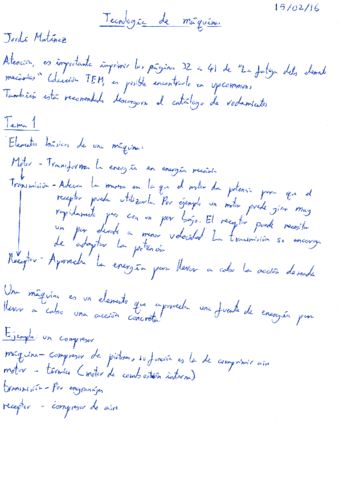 15/02/16
Tecnología de máquinas
Jordi Martínez
Atención, es importante imprimir las página 32 a 41 de "La fatiga dels elements
mecànics" Colección TEM, es posible encontrarlo en upcommons
También está recomendado descargar el catálogo de rodamientos
Tema 1
Elementos básicos de una máquina:
Motor - Transforma la energía en energía mecánica
Transmisión - Adecua la manera en la que el motor da potencia para que el
receptor pueda utilizarla. Por ejemplo un motor puede girar muy
rápidamente pero con un par bajo. El receptor puede necesitar
un par elevado a menor velocidad. La transmisión se encarga
de adaptar la potencia
Receptor - Aprovecha la energía para llevar a cabo la acción deseada
Una máquina es un elemento que aprovecha una fuente de energía para
llevar a cabo una acción concreta.
Ejemplo: un compresor
máquina - compresor de pistones, su función es la de comprimir aire
motor - térmico (motor de combustión interna)
transmisión - Por engranajes
receptor - compresor de aire